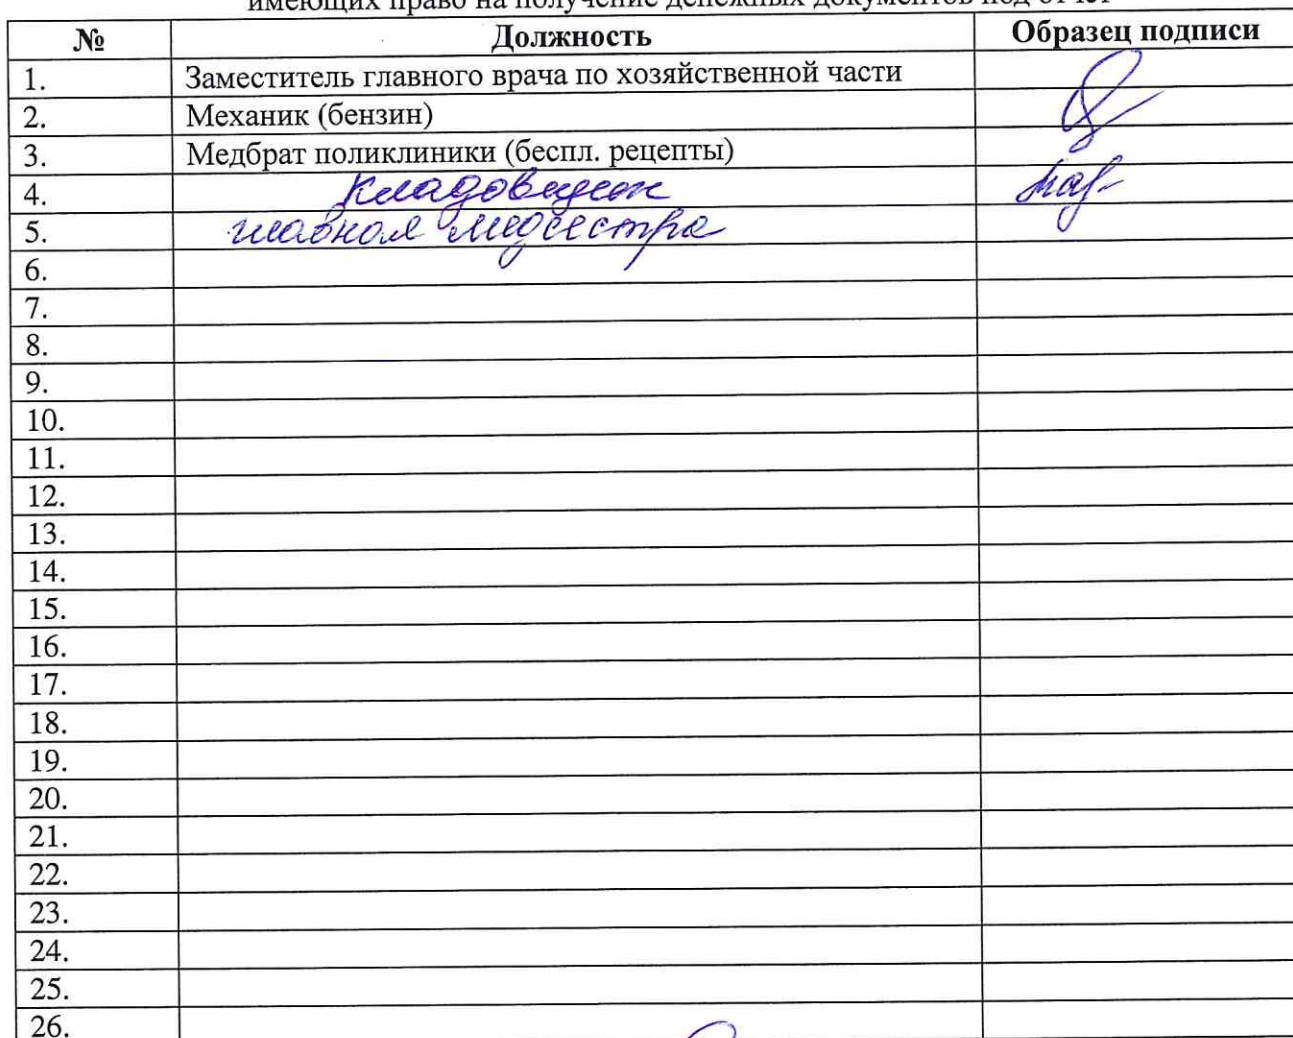 имеющих право на получение денежных документов под отчет
№ Должность Образец подписи
1. Заместитель главного врача по хозяйственной части
2. Механик (бензин)
3. Медбрат поликлиники (беспл. рецепты)
4. Кладовщик
5. главная медсестра
6.
7.
8.
9.
10.
11.
12.
13.
14.
15.
16.
17.
18.
19.
20.
21.
22.
23.
24.
25.
26.